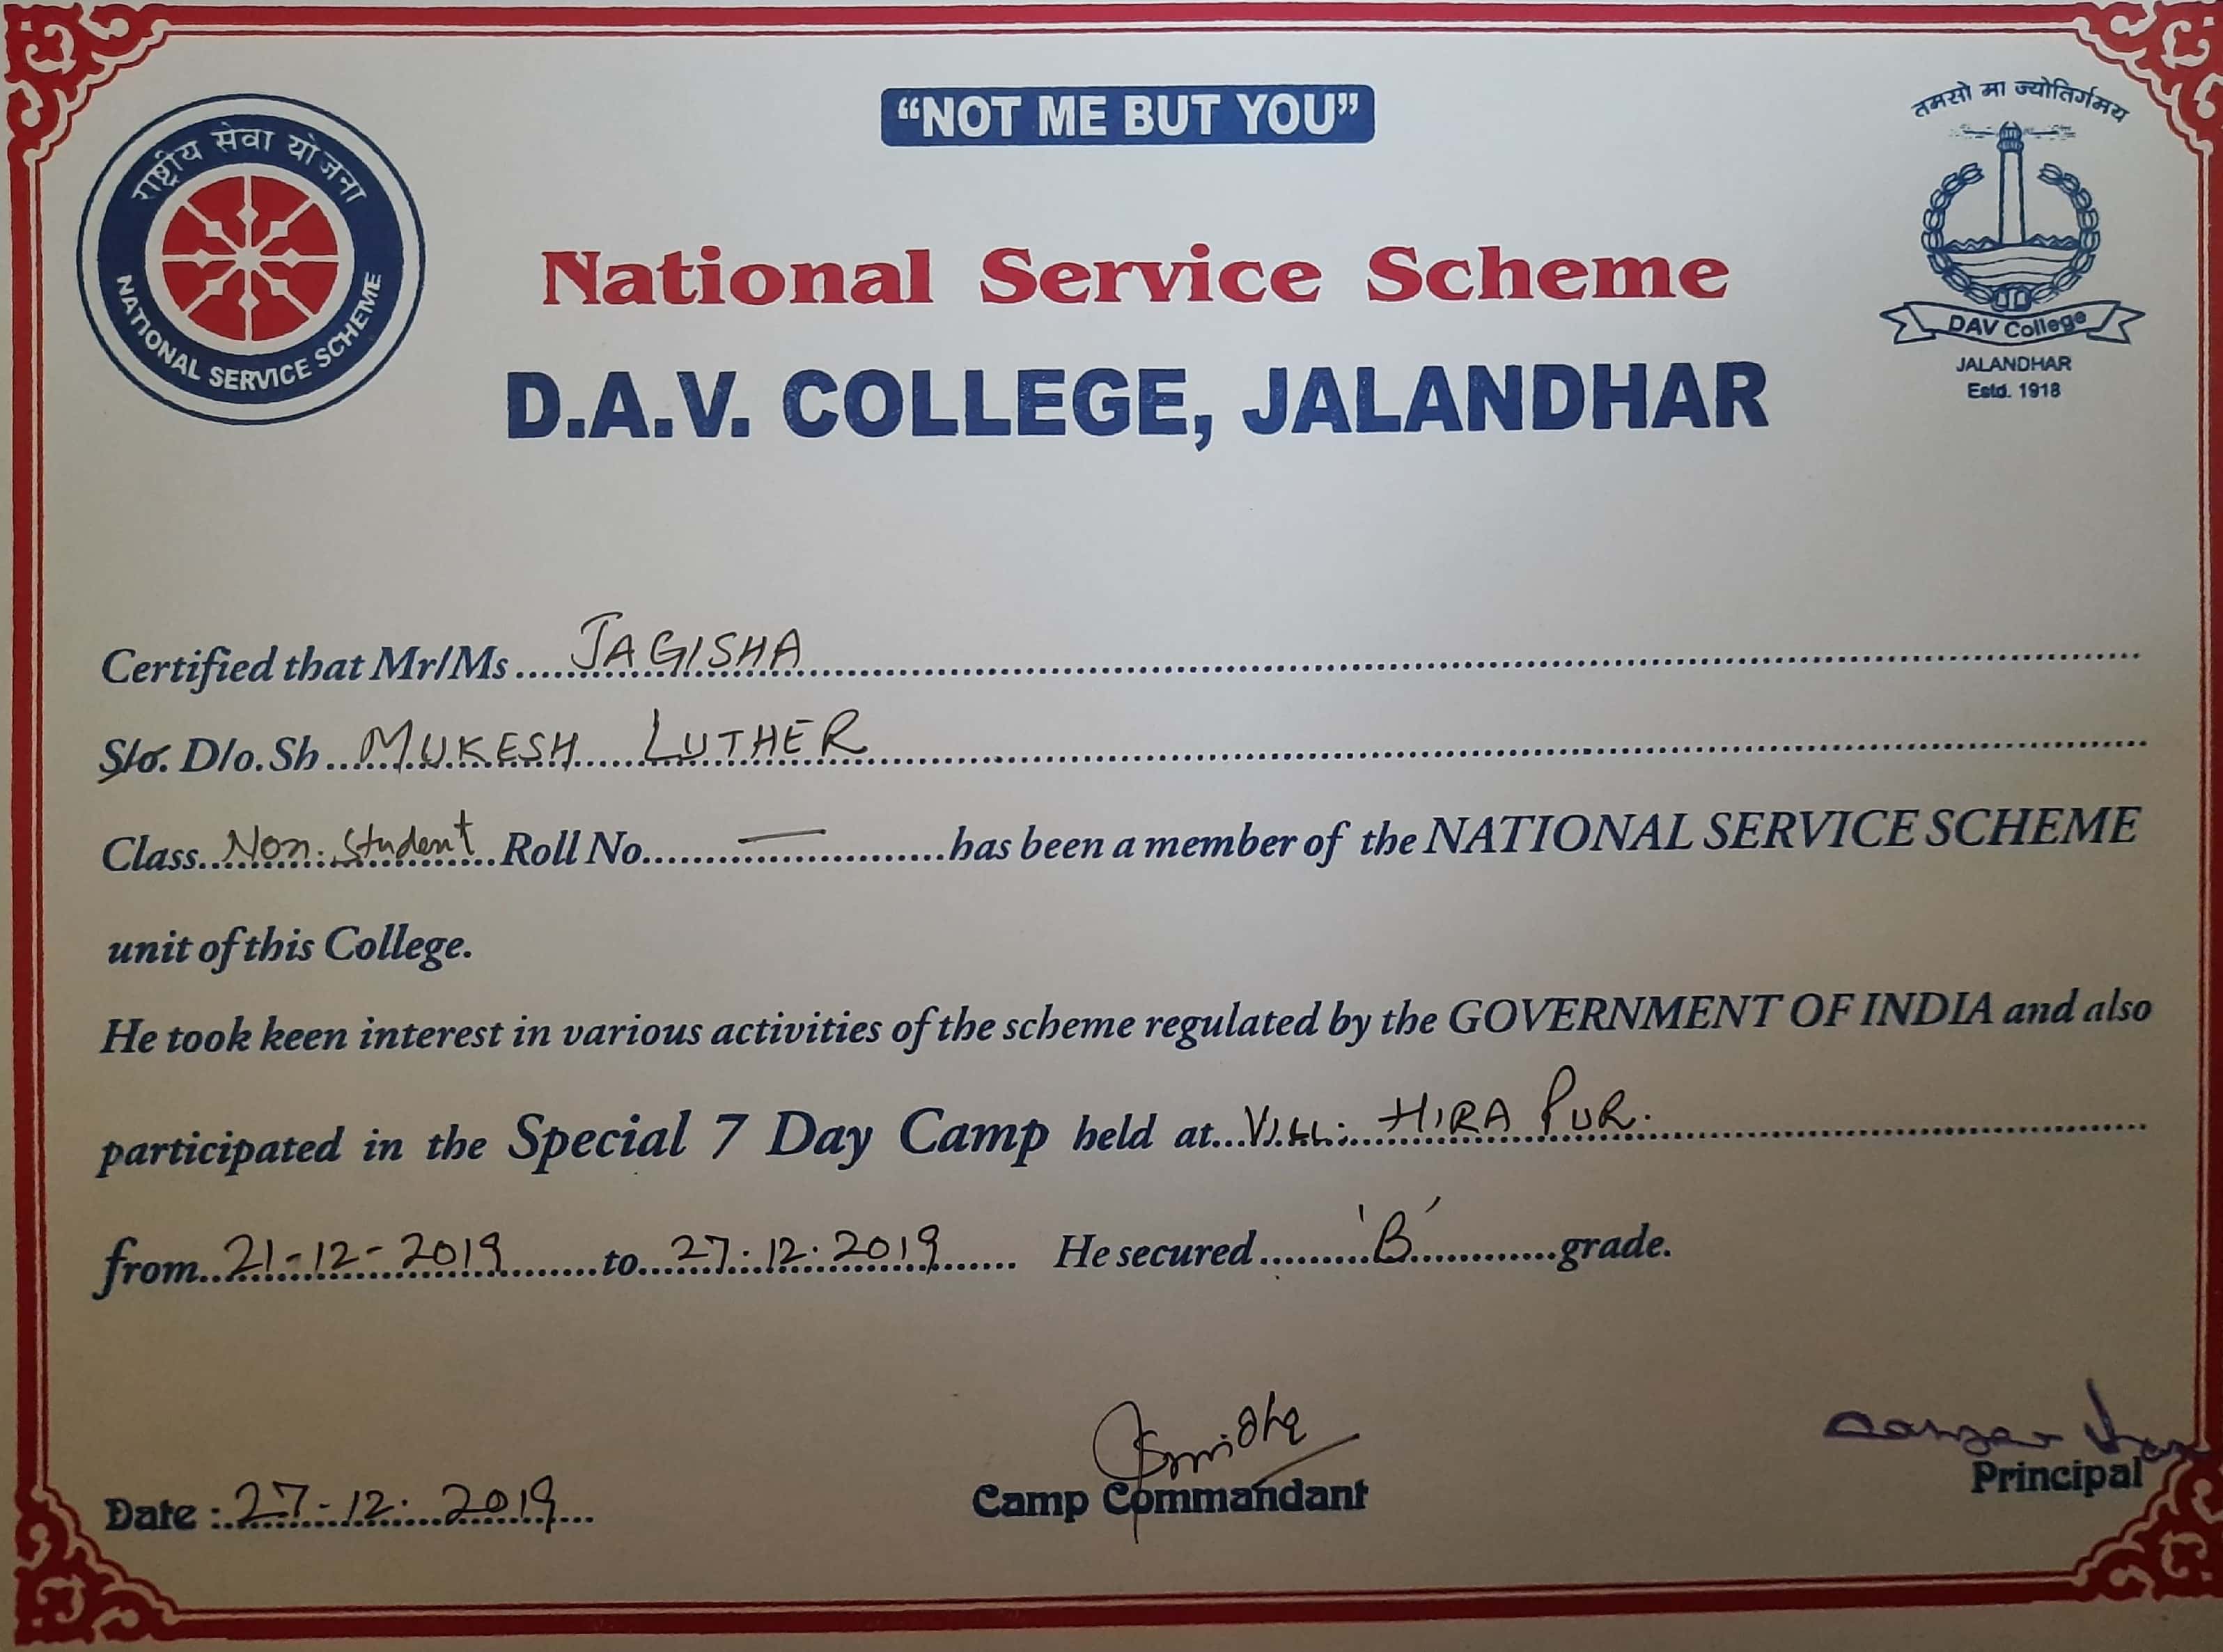 "NOT ME BUT YOU"
राष्ट्रीय सेवा योजना
NATIONAL SERVICE SCHEME
तमसो मा ज्योतिर्गमय
DAV College
JALANDHAR
Estd. 1918
National Service Scheme
D.A.V. COLLEGE, JALANDHAR
Certified that Mr/Ms JAGISHA
S/o. D/o. Sh MUKESH LUTHER
Class Non-Student Roll No. — has been a member of the NATIONAL SERVICE SCHEME
unit of this College.
He took keen interest in various activities of the scheme regulated by the GOVERNMENT OF INDIA and also
participated in the Special 7 Day Camp held at VILL: HIRA PUR.
from 21-12-2019 to 27.12.2019 He secured 'B' grade.
Date : 27-12.2019
Camp Commandant
Principal